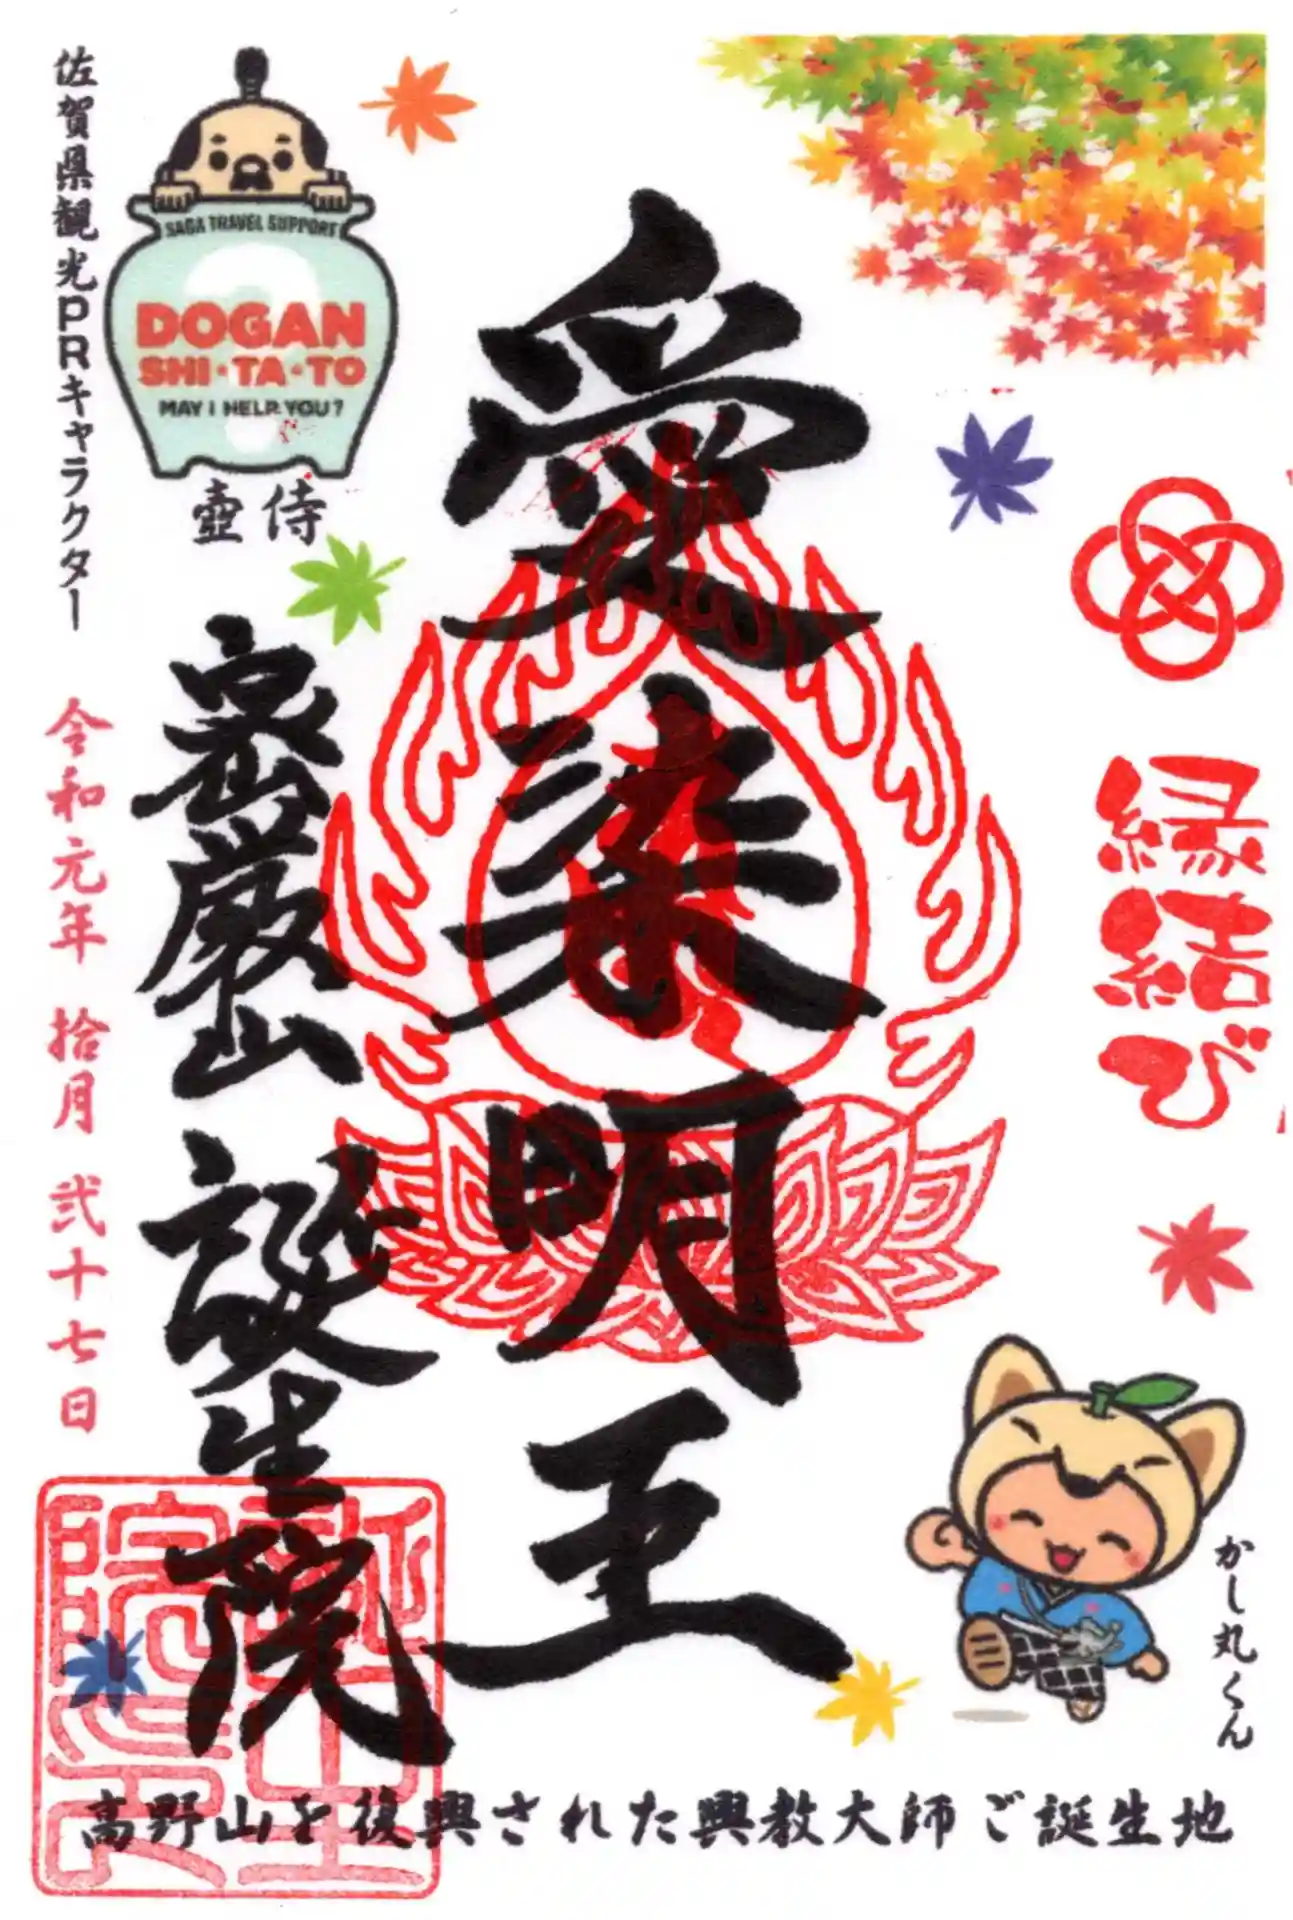 縁結び
愛染明王
密厳山 誕生院
佐賀県観光PRキャラクター
SAGA TRAVEL SUPPORT
DOGAN
SHI・TA・TO
MAY I HELP YOU?
壺侍
令和元年 拾月 弐十七日
かし丸くん
高野山を復興された興教大師ご誕生地